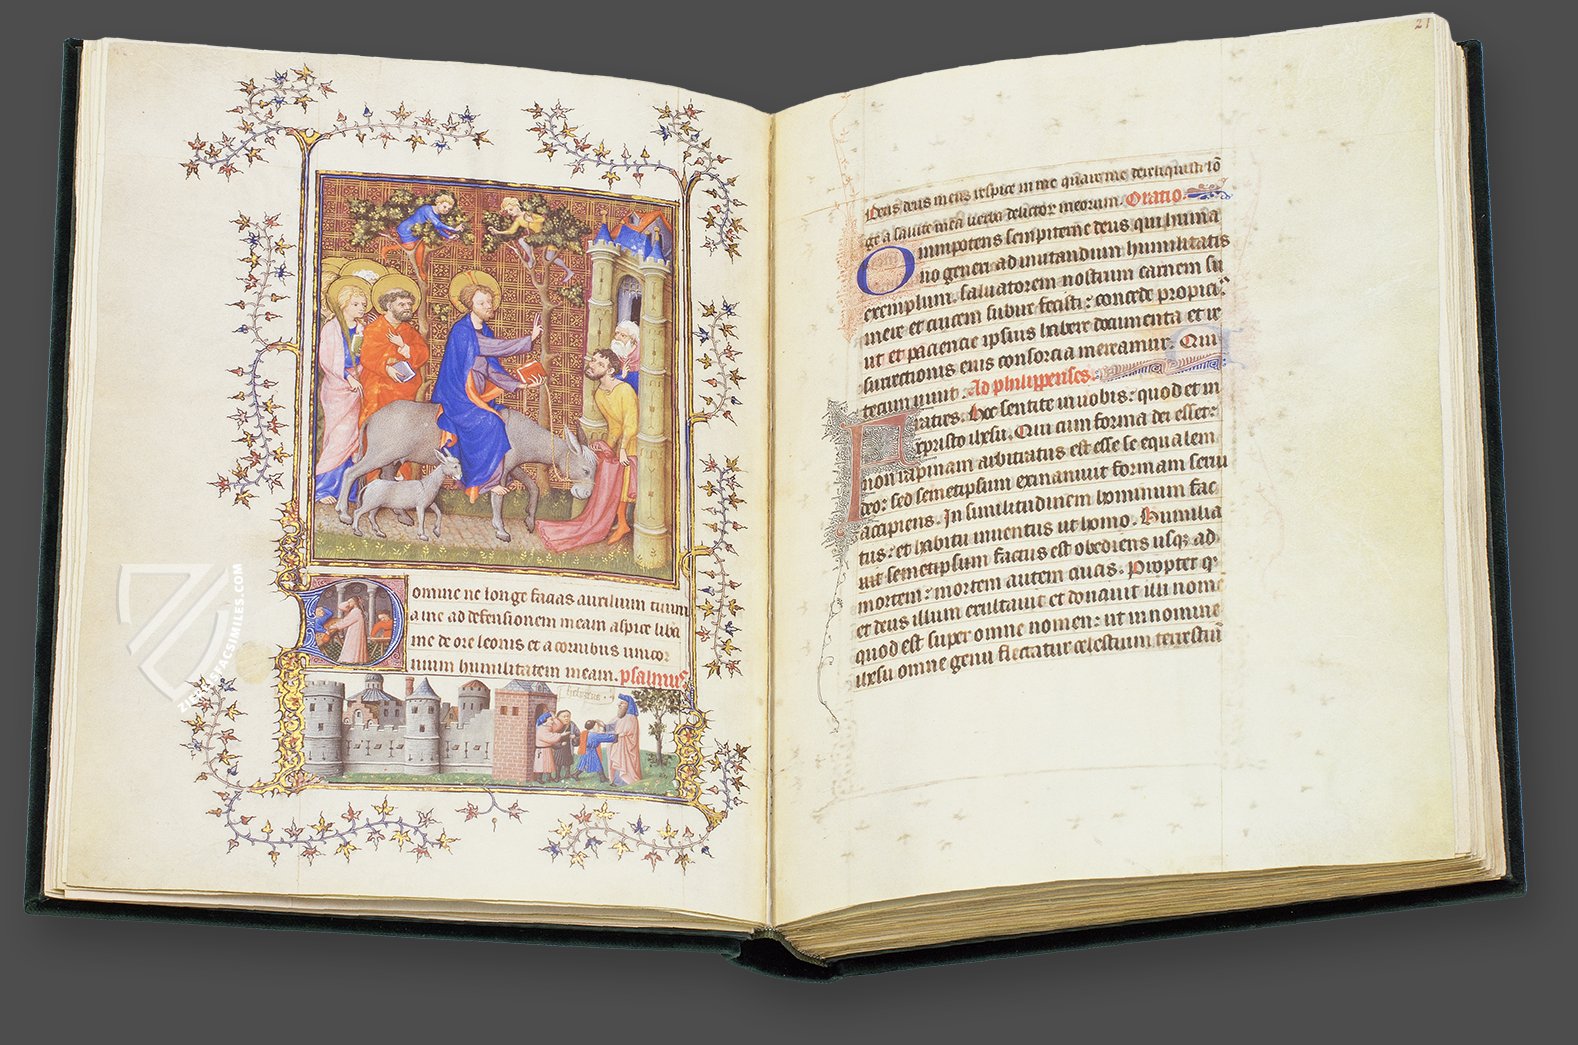 omine ne longe facias auxilium tuum
a me ad defensionem meam aspice libe
me de ore leonis et a cornibus unicor
nium humilitatem meam. psalmus
21
Deus deus meus respice in me quare me dereliquisti lō
ge a salute mea verba delictor meorum. Oratio.
Omnipotens sempiterne deus qui huma
no generi ad imitandum humilitatis
exemplum. saluatorem nostrum carnem su
mere et crucem subire fecisti: concede propici
ut et paciencie ipsius habere documenta et re
surrectionis eius consorcia mereamur. Qui
tecum uiuit. Ad philippenses.
Fratres. Hoc sentite in uobis: quod et in
xpristo ihesu. Qui cum forma dei esset:
non rapinam arbitratus est esse se equalem
deo: sed semetipsum exinaniuit formam serui
accipiens. In similitudinem hominum fac
tus: et habitu inuentus ut homo. Humilia
uit semetipsum factus est obediens usq; ad
mortem: mortem autem crucis. Propter q
et deus illum exultauit et donauit illi nome
quod est super omne nomen: ut in nomine
ihesu omne genu flectatur celestium terrestriū
ZIEREIS FACSIMILES.COM